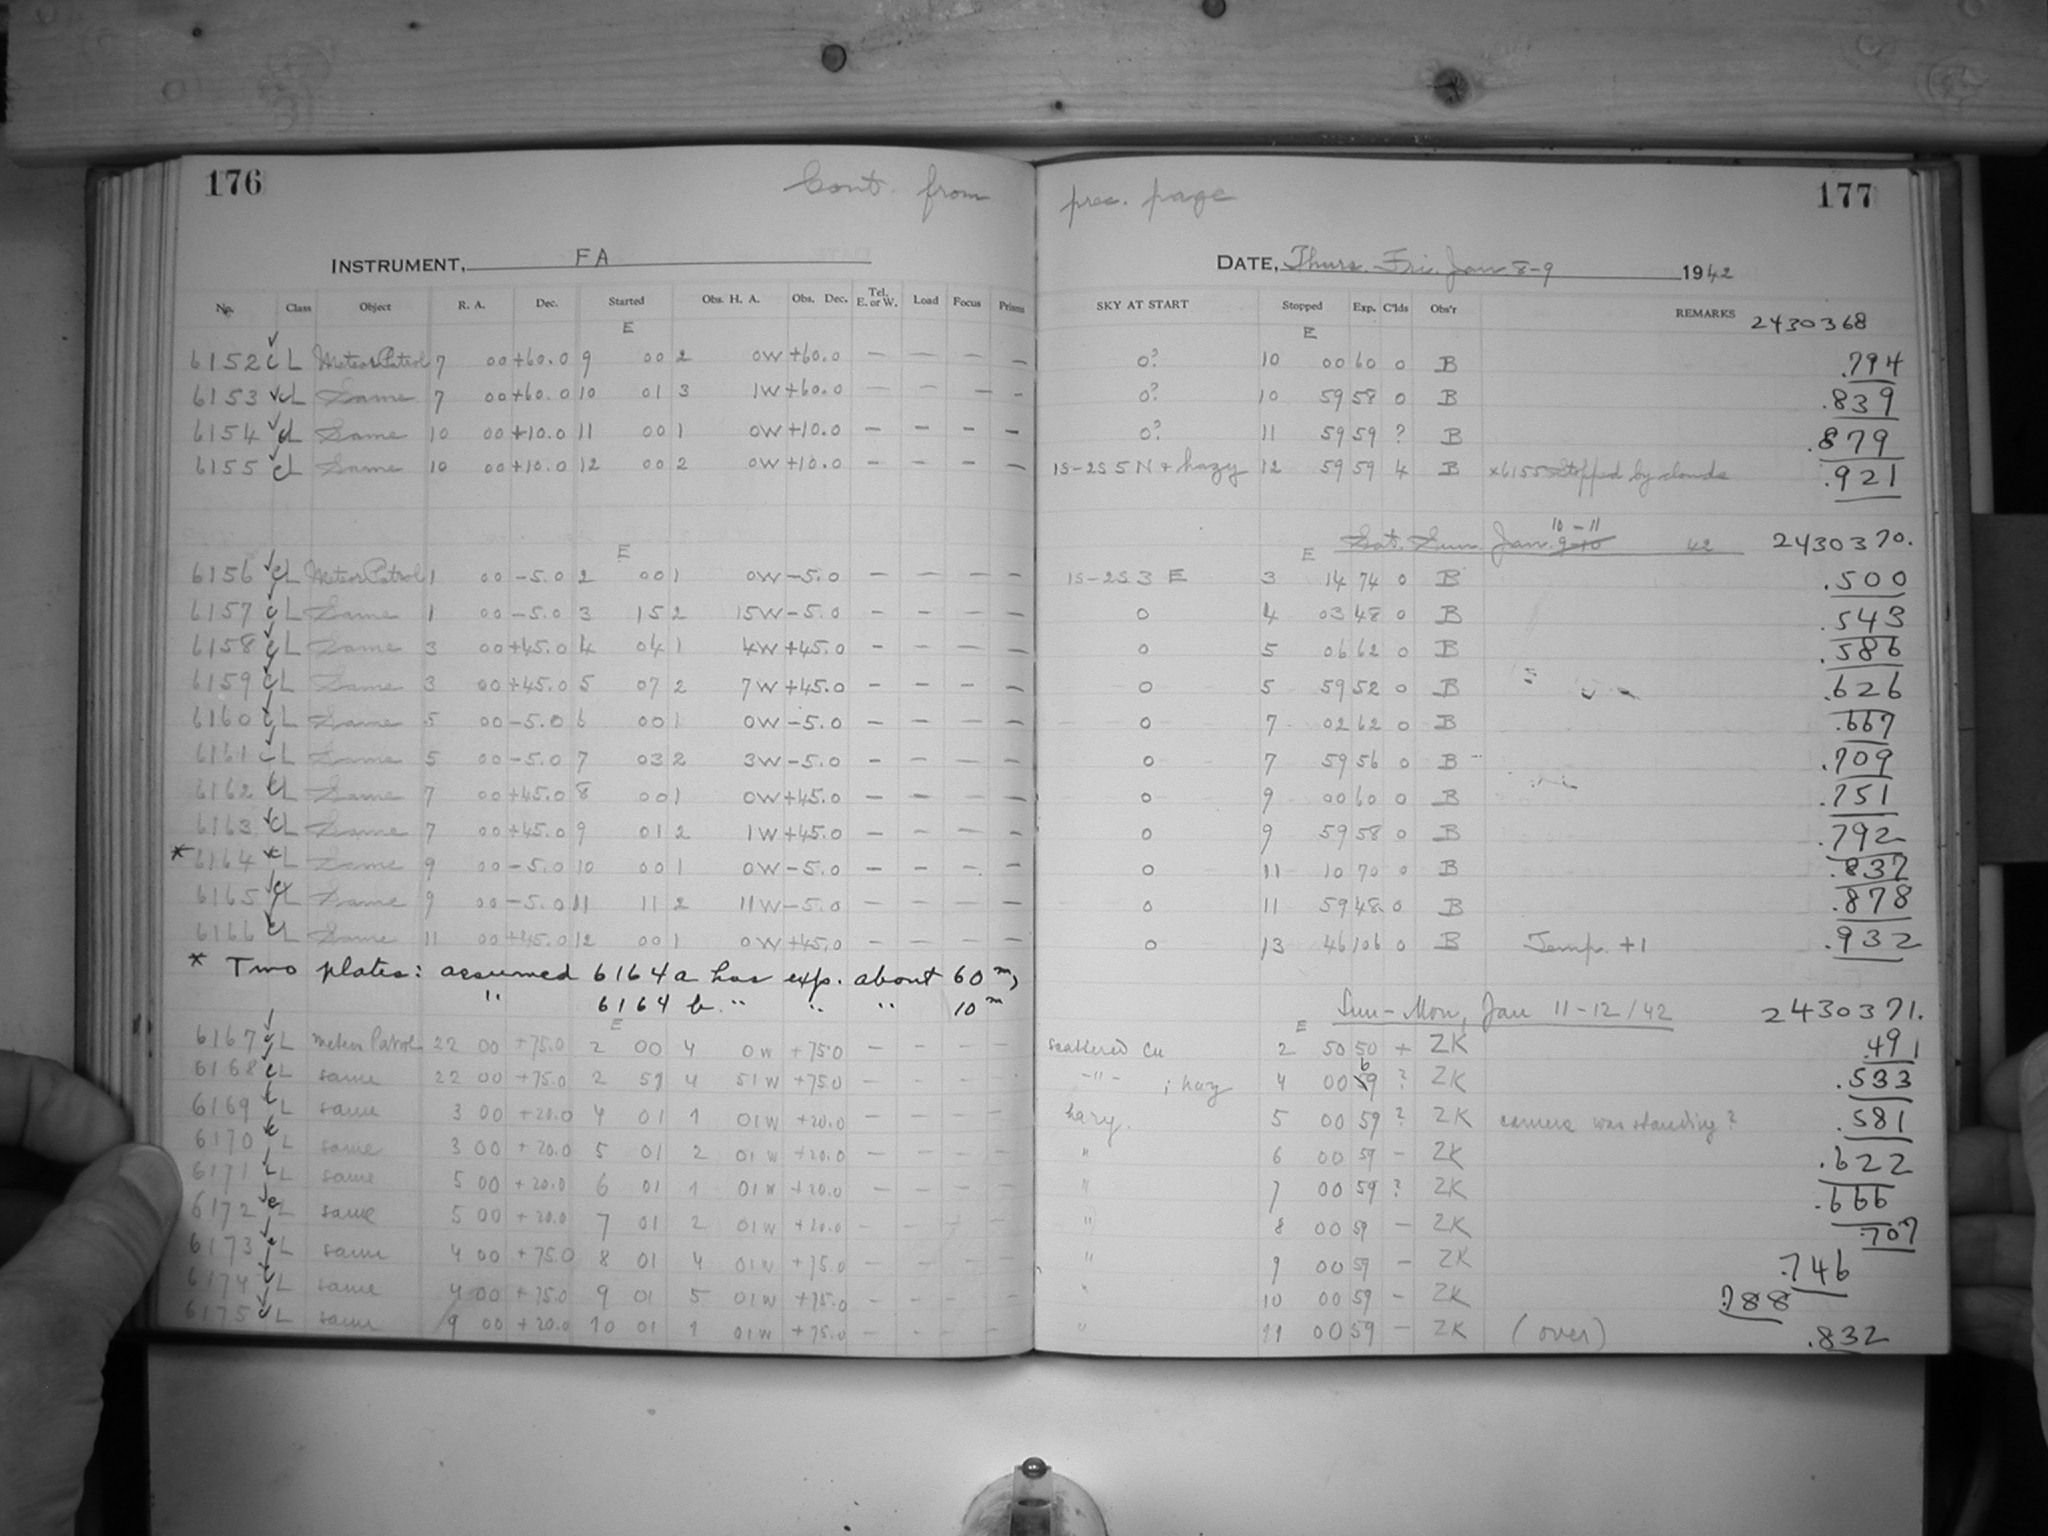 176 Cont. from prec. page 177
INSTRUMENT, FA DATE, Thurs. Fri. Jan 8-9 1942
No. Class Object R. A. Dec. Started Obs. H. A. Obs. Dec. Tel. E. or W. Load Focus Prisms SKY AT START Stopped Exp. C'lds Obs'r REMARKS 2430368
E E
6152 CL Meteor Patrol 7 00 +60.0 9 00 2 0W +60.0 — — — — 0? 10 00 60 0 B .794
6153 CL Same 7 00 +60.0 10 01 3 1W +60.0 — — — - 0? 10 59 58 0 B .839
6154 CL Same 10 00 +10.0 11 00 1 0W +10.0 — — — — 0? 11 59 59 ? B .879
6155 CL Same 10 00 +10.0 12 00 2 0W +10.0 — — — — 1S-2S 5 N + hazy 12 59 59 4 B x6155 stopped by clouds .921
E E Sat. Sun. Jan. 9-10 10-11 42 2430370.
6156 CL Meteor Patrol 1 00 -5.0 2 00 1 0W -5.0 — — — — 1S-2S 3 E 3 14 74 0 B .500
6157 CL Same 1 00 -5.0 3 15 2 15W -5.0 — — — — 0 4 03 48 0 B .543
6158 CL Same 3 00 +45.0 4 04 1 4W +45.0 — — — — 0 5 06 62 0 B .586
6159 CL Same 3 00 +45.0 5 07 2 7W +45.0 — — — — 0 5 59 52 0 B .626
6160 CL Same 5 00 -5.0 6 00 1 0W -5.0 — — — — 0 7 02 62 0 B .667
6161 CL Same 5 00 -5.0 7 03 2 3W -5.0 — — — — 0 7 59 56 0 B .709
6162 CL Same 7 00 +45.0 8 00 1 0W +45.0 — — — — 0 9 00 60 0 B .751
6163 CL Same 7 00 +45.0 9 01 2 1W +45.0 — — — — 0 9 59 58 0 B .792
* 6164 CL Same 9 00 -5.0 10 00 1 0W -5.0 — — — — 0 11 10 70 0 B .837
6165 CL Same 9 00 -5.0 11 11 2 11W -5.0 — — — — 0 11 59 48 0 B .878
6166 CL Same 11 00 +45.0 12 00 1 0W +45.0 — — — — 0 13 46 106 0 B Temp. +1 .932
* Two plates: assumed 6164a has exp. about 60m,
" 6164 b " " " 10m Sun-Mon, Jan 11-12/42 2430371.
E E
6167 CL meteor Patrol 22 00 +75.0 2 00 4 0W +75.0 — — — — scattered cu 2 50 50 + ZK .491
6168 CL same 22 00 +75.0 2 59 4 51W +75.0 — — — — -"- ; hazy 4 00 69 ? ZK .533
6169 CL same 3 00 +20.0 4 01 1 01W +20.0 — — — — hazy. 5 00 59 ? ZK camera was standing? .581
6170 CL same 3 00 +20.0 5 01 2 01W +20.0 — — — — " 6 00 59 - ZK .622
6171 CL same 5 00 +20.0 6 01 1 01W +20.0 — — — — " 7 00 59 ? ZK .666
6172 CL same 5 00 +20.0 7 01 2 01W +20.0 — — — — " 8 00 59 — ZK .707
6173 CL same 4 00 +75.0 8 01 4 01W +75.0 — — — — " 9 00 59 — ZK .746
6174 CL same 4 00 +75.0 9 01 5 01W +75.0 — — — — " 10 00 59 - ZK .788
6175 CL same 9 00 +20.0 10 01 1 01W +75.0 — — — — " 11 00 59 — ZK (over) .832